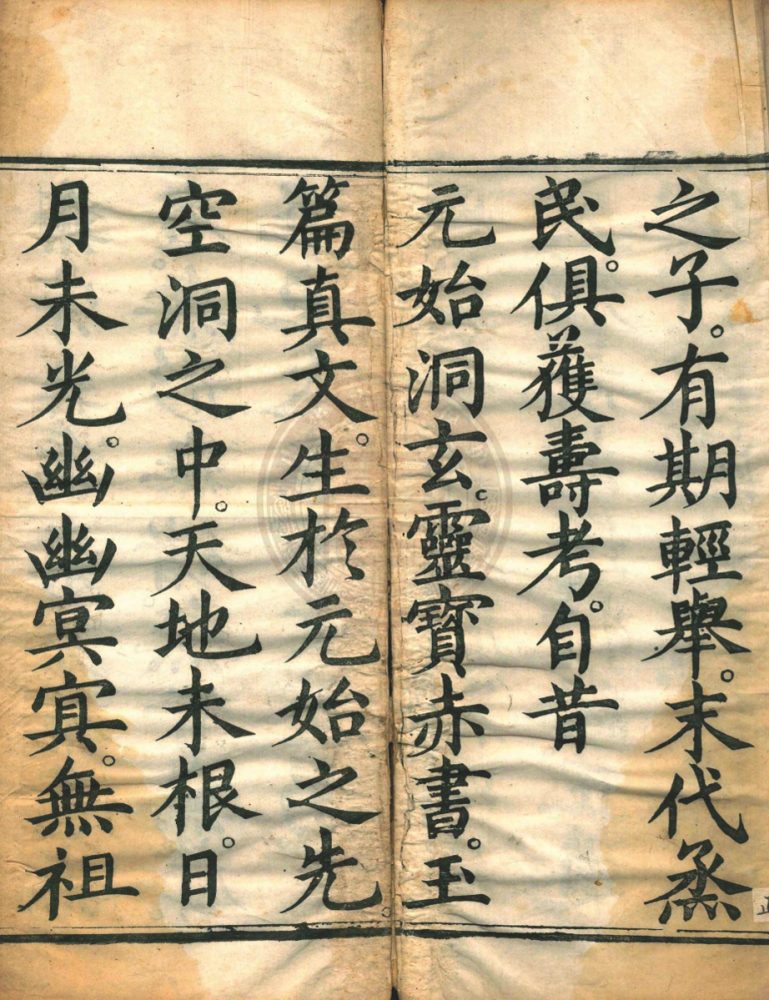 之子。有期輕舉。末代烝
民。俱獲壽考。自昔
元始洞玄。靈寶赤書。玉
篇真文。生於元始之先。
空洞之中。天地未根。日
月未光。幽幽冥冥。無祖